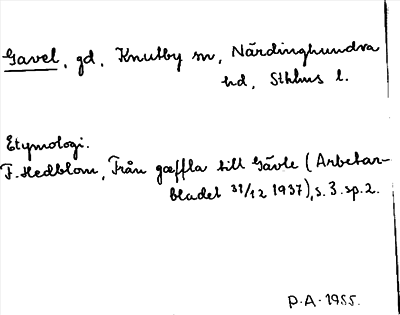 Gavel, gd, Knutby sn, Närdinghundra
hd, Sthlms l.
Etymologi.
F. Hedblom, Från gæffla till Gävle (Arbetar-
bladet 31/12 1937), s. 3. sp. 2.
P.A. 1955.